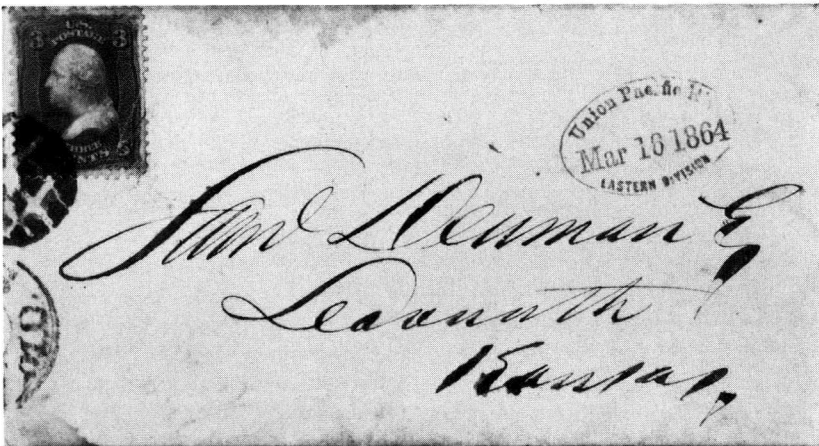 U.S.
POSTAGE
3 3
THREE
CENTS
Union Pacific R
Mar 16 1864
EASTERN DIVISION
Sam<sup>l</sup> Denman E
Leavenworth
Kansas,